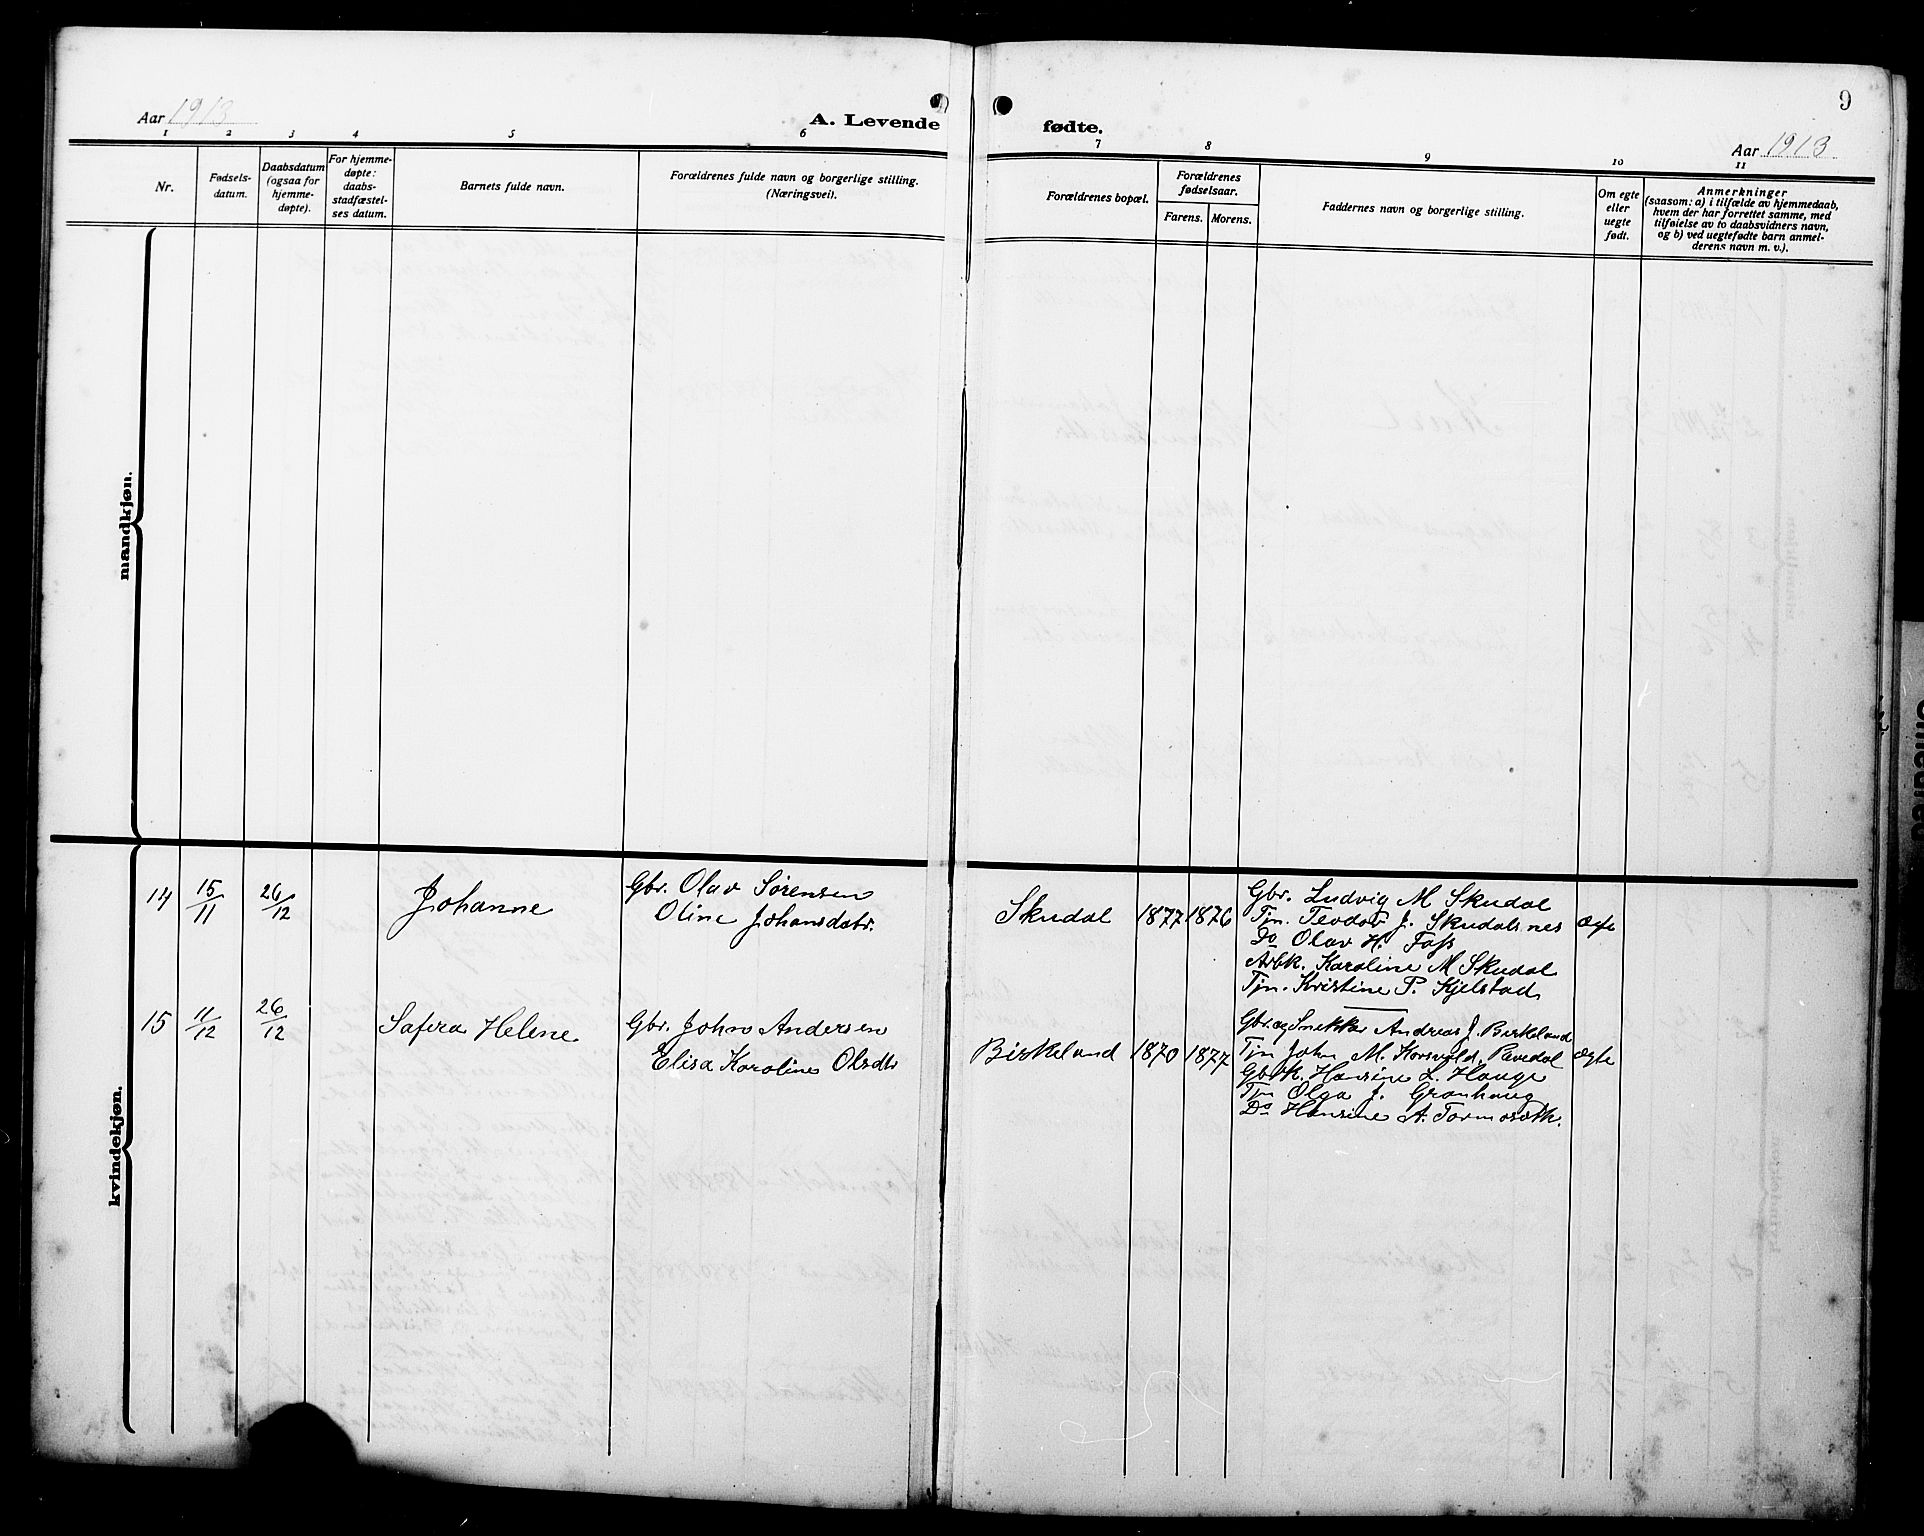 Aar 1913
A. Levende
1 2 3 4 5 6
Nr.
Fødsels-
datum.
Daabsdatum
(ogsaa for
hjemme-
døpte).
For hjemme-
døpte:
daabs-
stadfæstel-
ses datum.
Barnets fulde navn.
Forældrenes fulde navn og borgerlige stilling.
(Næringsvei).
mandkjøn.
14 15/11 26/12 Johanne Gbr. Olav Sørensen
Oline Johansdatr.
15 11/12 26/12 Safira Helene Gbr. John Andersen
Elisa Karoline Olsdtr
kvindekjøn.
9
fødte.
Aar 1913
7 8 9 10 11
Forældrenes bopæl.
Forældrenes
fødselsaar.
Farens. Morens.
Faddernes navn og borgerlige stilling.
Om egte
eller
uegte
født.
Anmerkninger
(saasom: a) i tilfælde av hjemmedaab,
hvem der har forrettet samme, med
tilføielse av to daabsvidners navn,
og b) ved uegtefødte barn anmel-
derens navn m. v.).
Gbr. Ludvig M Skudal
Skudal 1877 1876 Tjn. Teodor J. Skudalsnes
Do Olav H. Foss
Arbk. Karoline M Skudal
Tjn. Kristine P. Kjelstad
Gbr. og Snekker Andreas J. Birkeland
Birkeland 1870 1877 Tjn John M. Korsvold, Revedal egte
Gbrk. Hansine L. Hauge
Tjn Olga J. Gronhaug
Do Hansine A.